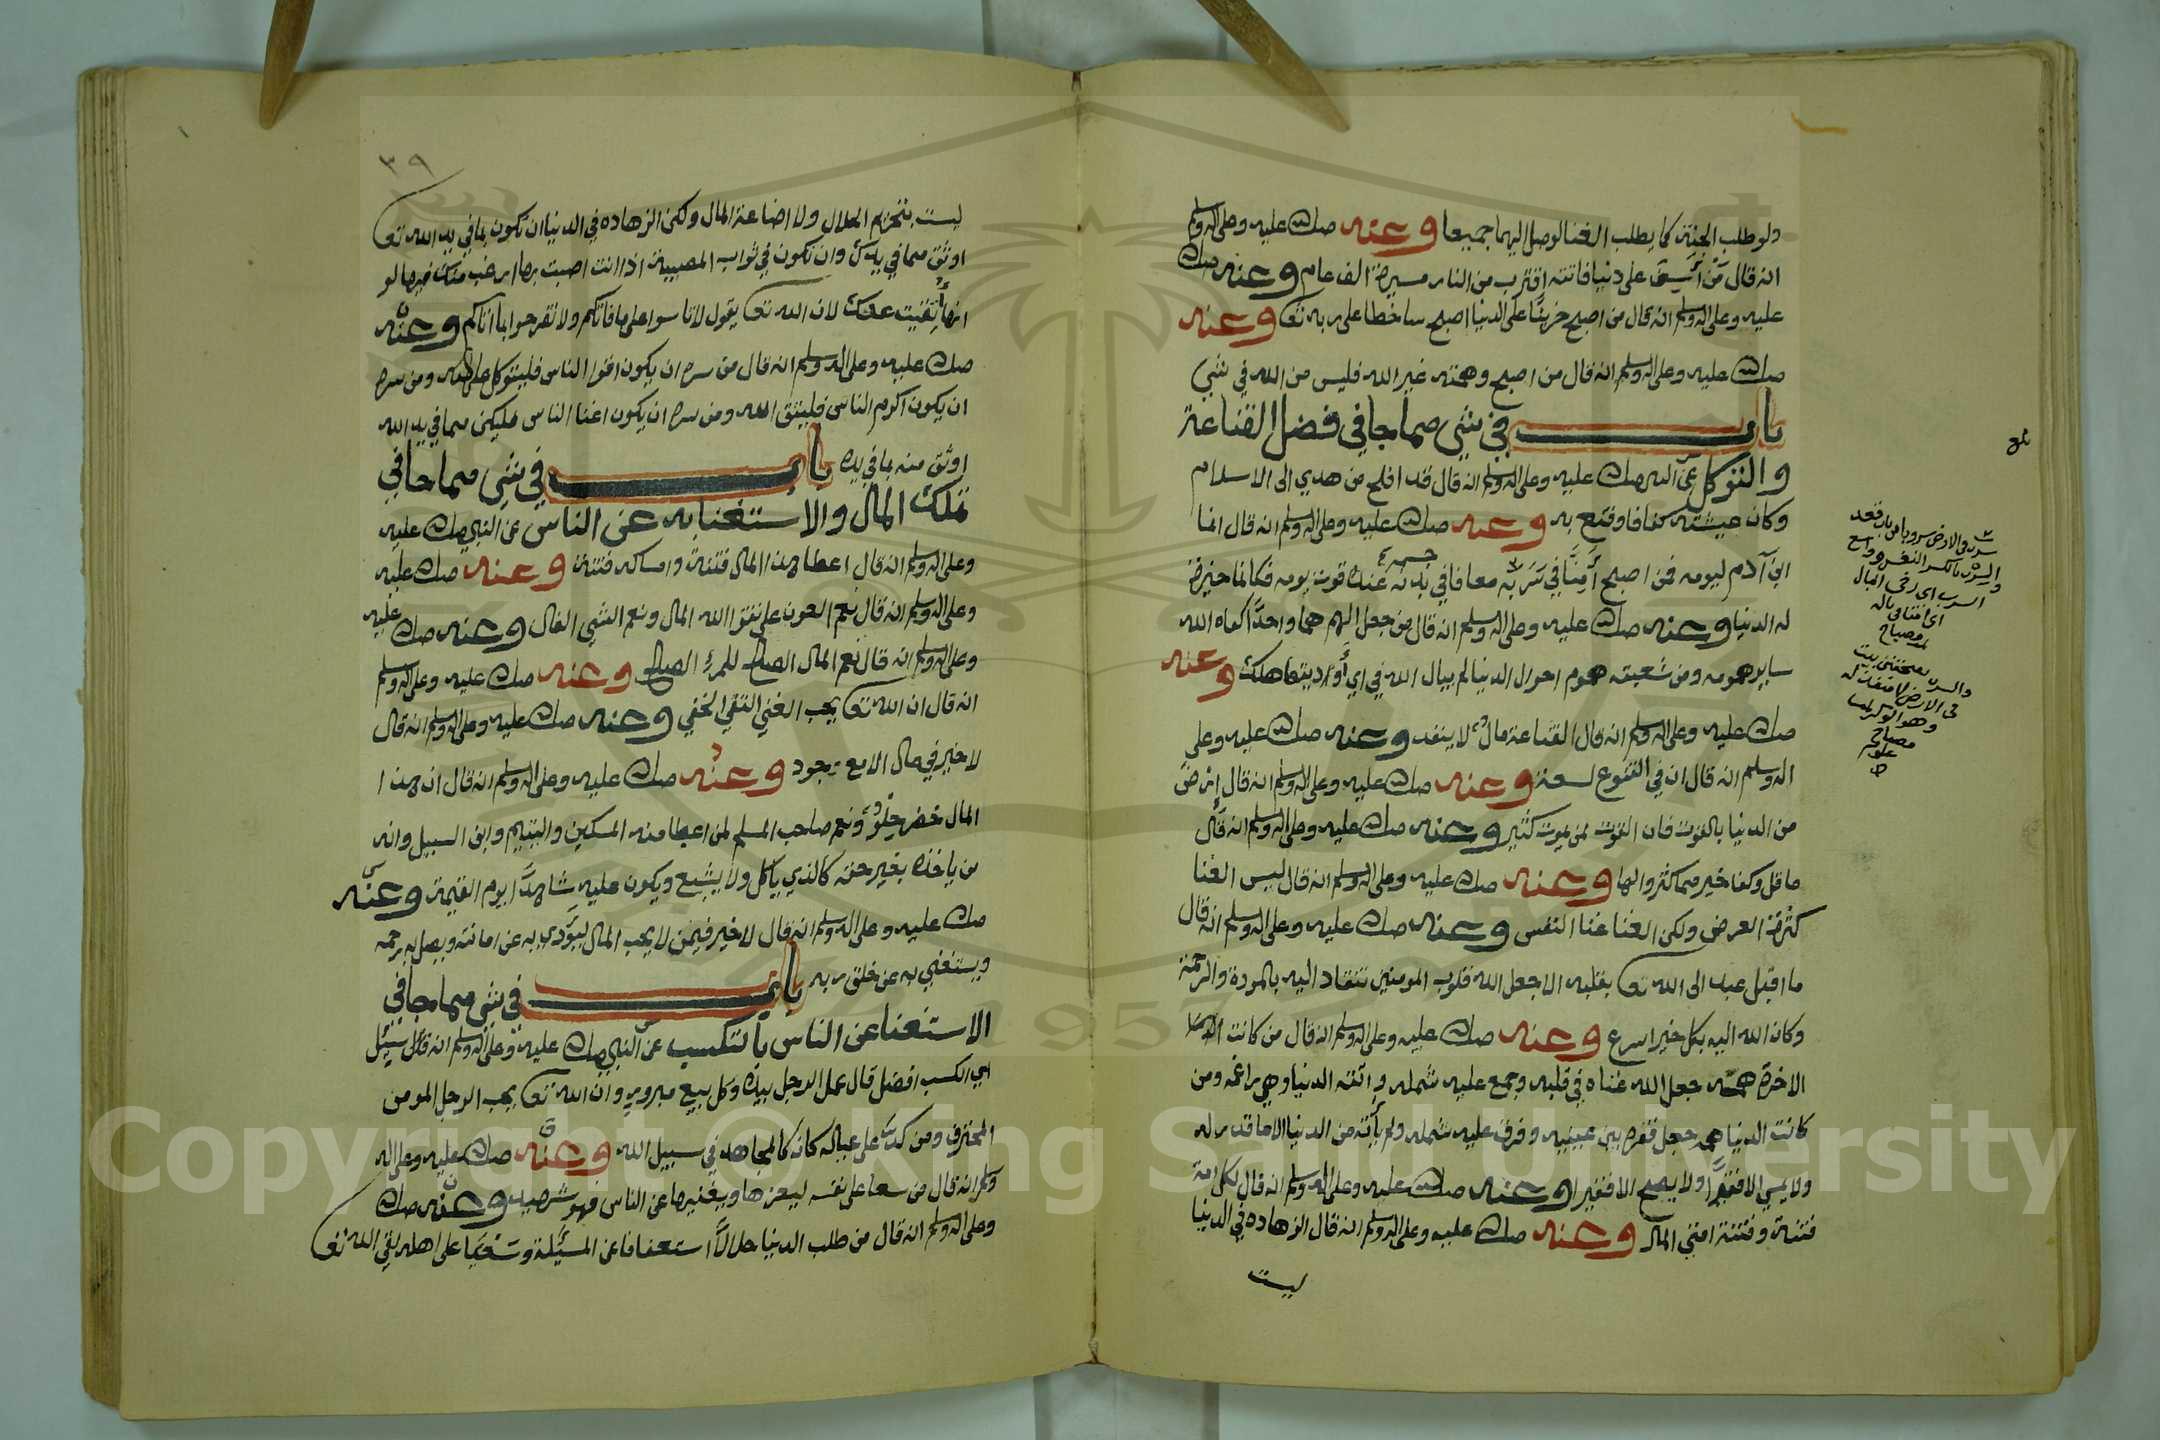 ولو طلب الجنة كما يطلب الغنا لوصل اليهما جميعا وعنه صلى الله عليه وعلى اله وسلم
انه قال من أسف على دنيا فاتته اقترب من النار مسيرة الف عام وعنه صلى الله
عليه وعلى اله وسلم انه قال من اصبح حزينا على الدنيا اصبح ساخطا على ربه تعا وعنه
صلى الله عليه وعلى اله وسلم انه قال من اصبح وهمته غير الله فليس من الله في شي
باب في شي مما جا في فضل القناعة
والتوكل عن النبي صلى الله عليه وعلى اله وسلم انه قال قد افلح من هدي الى الاسلام
وكان عيشته كفافا وقنع به وعنه صلى الله عليه وعلى اله وسلم انه قال انما
ابن آدم ليومه فمن اصبح آمنا في سربه معافا في بدنه عنده قوت يومه فكانما خيرت
جسمه
له الدنيا وعنه صلى الله عليه وعلى اله وسلم انه قال من جعل الهم هما واحدا كفاه الله
ساير همومه ومن شعبته هموم احوال الدنيا لم يبال الله في اي أوديتها هلك وعنه
صلى الله عليه وعلى اله وسلم انه قال القناعة مال لا ينفد وعنه صلى الله عليه وعلى
اله وسلم انه قال ان في القنوع لسعة وعنه صلى الله عليه وعلى اله وسلم انه قال إرض
من الدنيا بالقوت فان القوت لمن يموت كثير وعنه صلى الله عليه وعلى اله وسلم انه قال
ما قل وكفا خير مما كثر والها وعنه صلى الله عليه وعلى اله وسلم انه قال ليس الغنا
كثرة العرض ولكن الغنا غنا النفس وعنه صلى الله عليه وعلى اله وسلم انه قال
ما اقبل عبد الى الله تعا بقلبه الا جعل الله قلوب المومنين تنقاد اليه بالمودة والرحمة
وكان الله اليه بكل خير اسرع وعنه صلى الله عليه وعلى اله وسلم انه قال من كانت
الاخرة همه جعل الله غناه في قلبه وجمع عليه شمله واتته الدنيا وهي راغمة ومن
كانت الدنيا همه جعل فقره بين عينيه وفرق عليه شمله ولم يأته من الدنيا الا ما قدر له
ولا يمسي الا فقيرا ولا يصبح الا فقيرا وعنه صلى الله عليه وعلى اله وسلم انه قال لكل امة
فتنة وفتنة امتي المال وعنه صلى الله عليه وعلى اله وسلم انه قال الزهاده في الدنيا
ليست
والسرب بالكسر النفس وواسع
السرب اي رخي البال
مصباح
في الارض لا منفذ له
وهو الوكر ايضا
مصباح
٣٩
ليست بتحريم الحلال ولا اضاعة المال ولكن الزهاده في الدنيا ان تكون بما في يد الله تعا
اوثق مما في يدك وان تكون في ثواب المصيبة اذا انت اصبت بها ارغب منك فيها لو
انها أبقيت عليك لان الله تعا يقول لا تاسوا على ما فاتكم ولا تفرحوا بما اتاكم وعنه
صلى الله عليه وعلى اله وسلم انه قال من سره ان يكون اقوا الناس فليتوكل على الله ومن سره
ان يكون اكرم الناس فليتق الله ومن سره ان يكون اغنا الناس فليكن مما في يد الله
اوثق منه بما في يده باب في شي مما جا في
تملك المال والاستغنا به عن الناس عن النبي صلى الله عليه
وعلى اله وسلم انه قال اعطا هذا المال فتنة وامساكه فتنة وعنه صلى الله عليه
وعلى اله وسلم انه قال نعم العون على تقوا الله المال ونعم الشي الفال وعنه صلى الله عليه
وعلى اله وسلم انه قال نعم المال الصالح للمرء الصالح وعنه صلى الله عليه وعلى اله وسلم
انه قال ان الله تعا يحب الغني التقي الخفي وعنه صلى الله عليه وعلى اله وسلم انه قال
لا خير في مال الا مع جود وعنه صلى الله عليه وعلى اله وسلم انه قال ان هذا
المال خضر حلو ونعم صاحب المسلم لمن اعطا منه المسكين واليتيم وابن السبيل وانه
من ياخذه بغير حقه كالذي ياكل ولا يشبع ويكون عليه شاهدا يوم القيمة وعنه
صلى الله عليه وعلى اله وسلم انه قال لا خير فيمن لا يحب المال ليؤدي به عن امانته ويصل به رحمه
ويستغني به عن خلق ربه باب في شي مما جا في
الاستغنا عن الناس بالتكسب عن النبي صلى الله عليه وعلى اله وسلم انه قال سيل
اي الكسب افضل قال عمل الرجل بيده وكل بيع مبرور وان الله تعا يحب الرجل المومن
المحترف ومن كد على عياله كان كالمجاهد في سبيل الله وعنه صلى الله عليه وعلى اله
وسلم انه قال من سعا على نفسه ليعزها ويغنيها عن الناس فهو شهيد وعنه صلى الله
وعلى اله وسلم انه قال من طلب الدنيا حلالا استعفافا عن المسئلة وسعيا على اهله لقي الله تعا
1957
Copyright © King Saud University